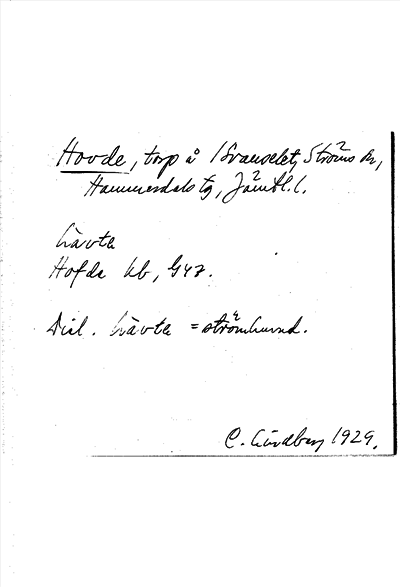 Hovde, torp å Svaneselet, Ströms sn,
Hammerdals tg, Jämtl. l.
hävta
Hofde kb, G42.
Dial. hävta = strömhuvud.
C. Lindberg 1929.